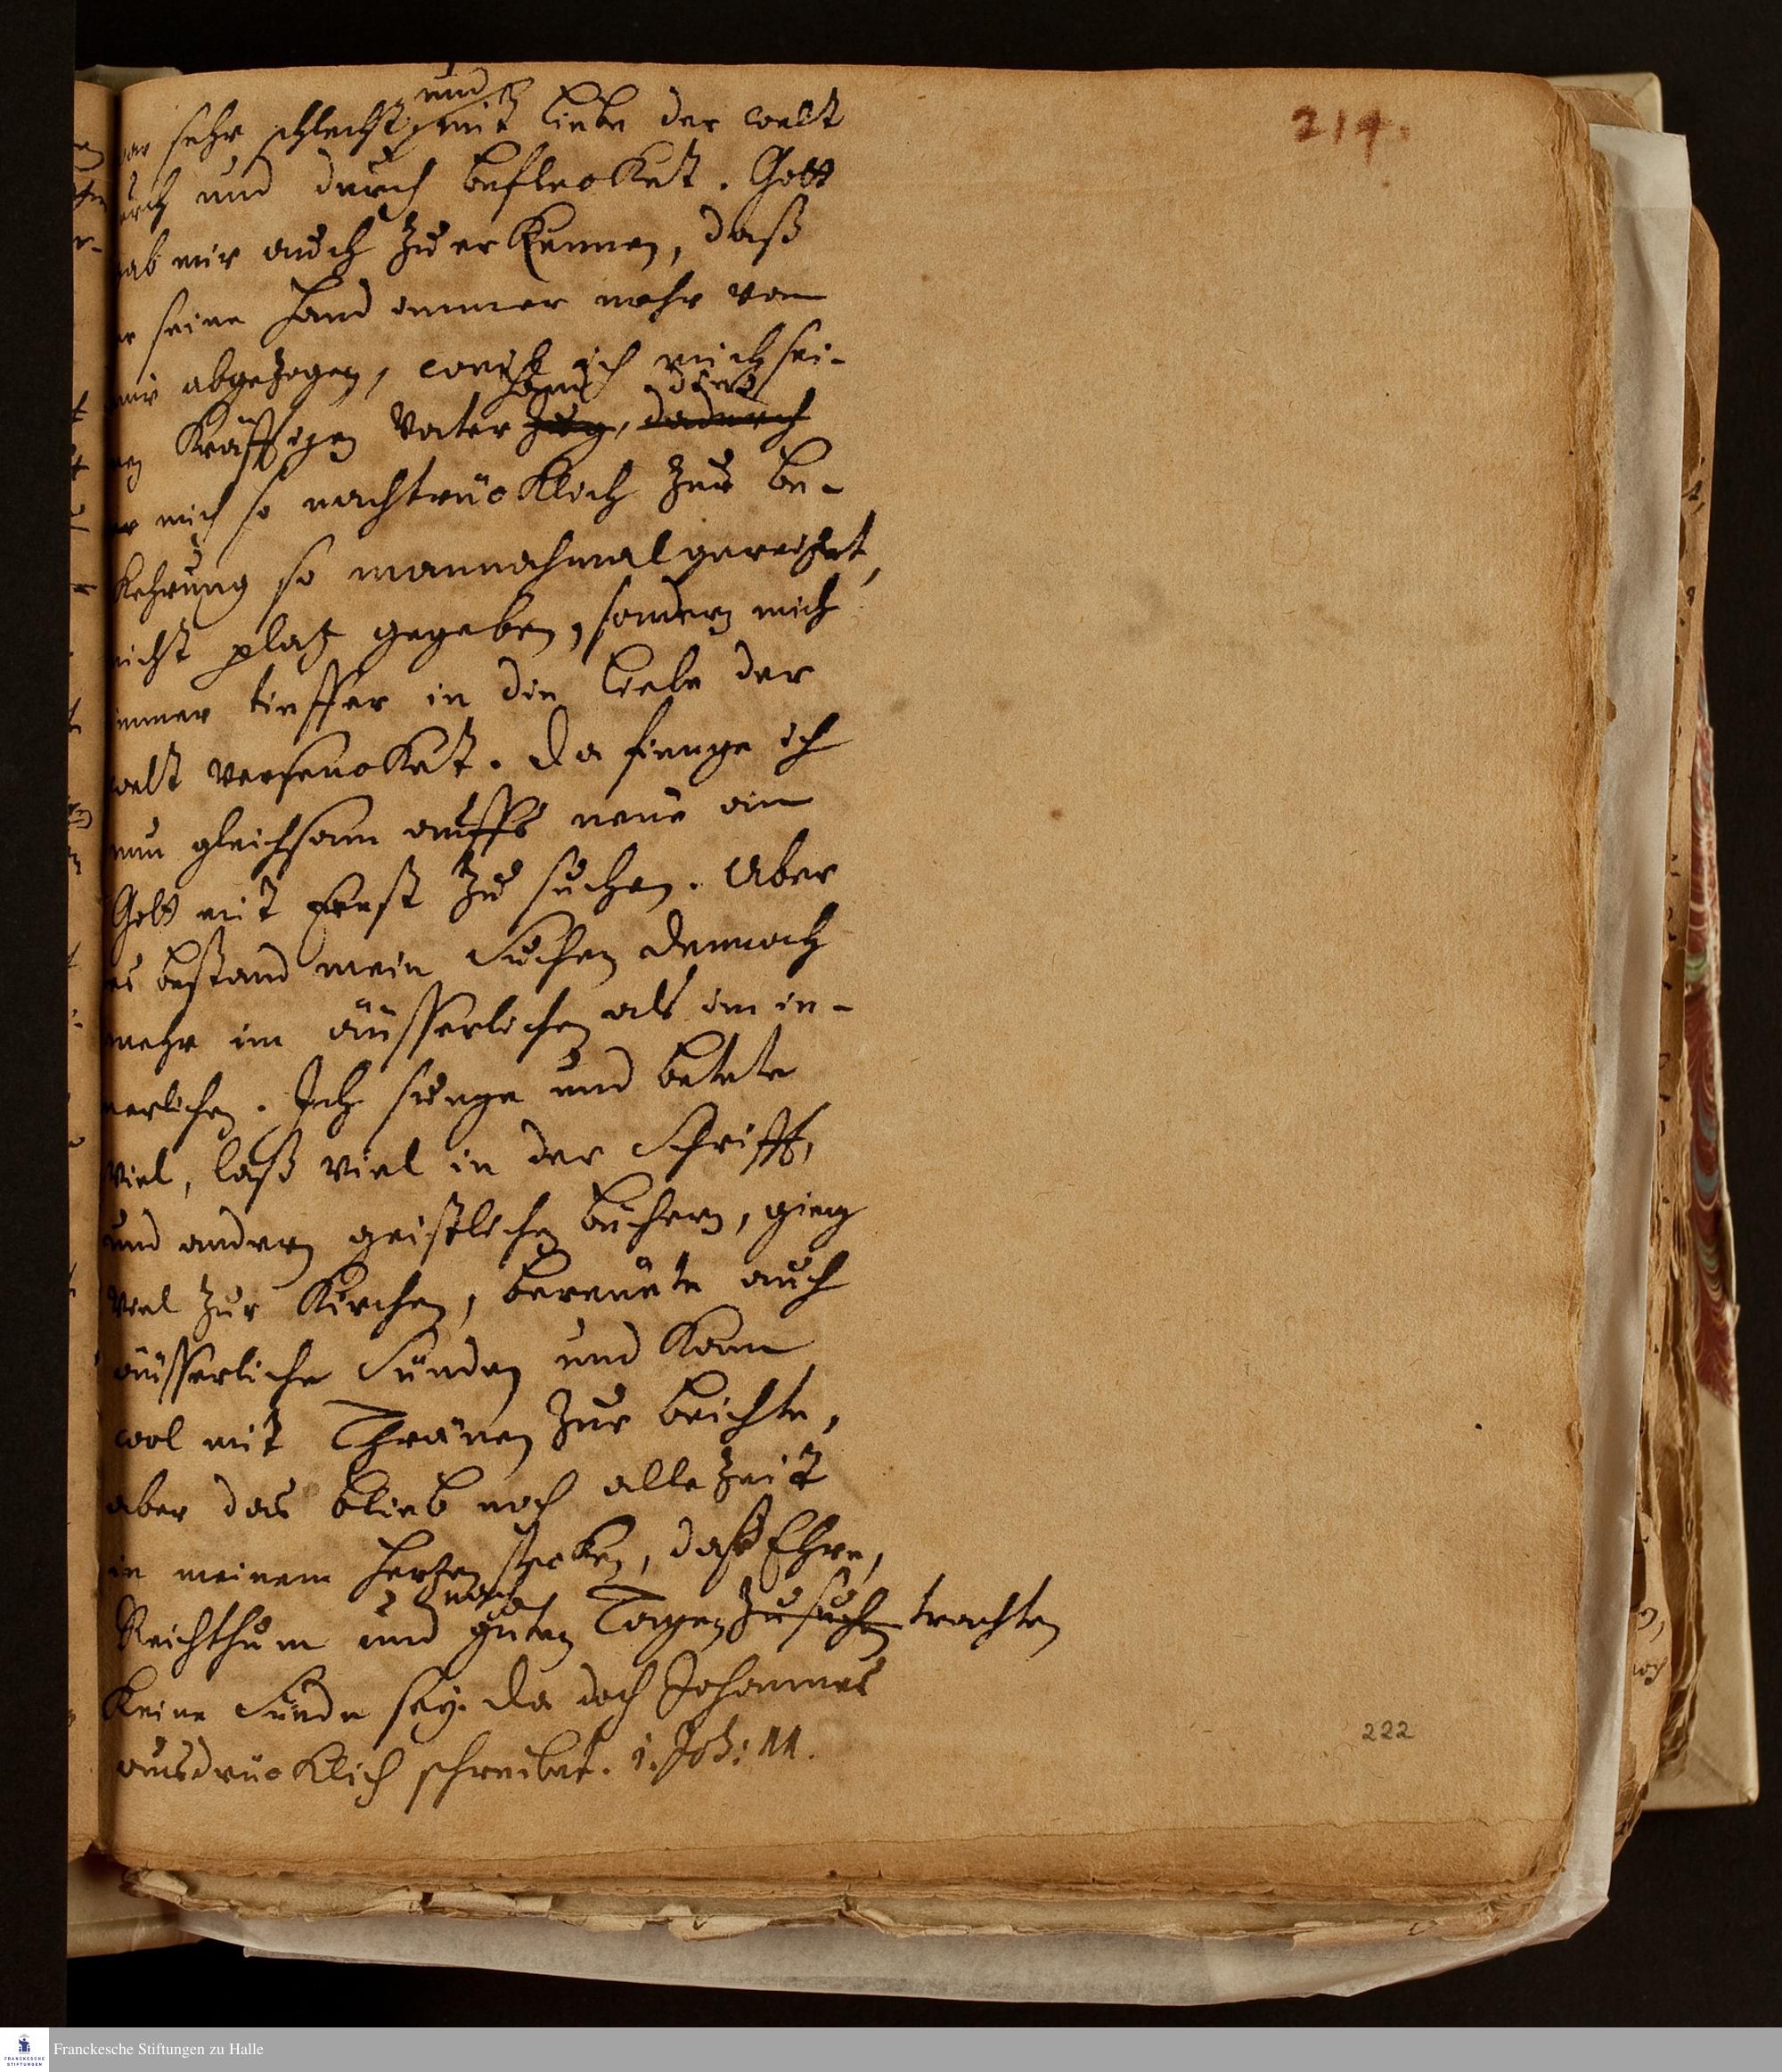 214.
war sehr schlecht, und mit liebe der welt
durch und durch beflecket. Gott
gab mir auch zu erkennen, daß
er seine Hand immer mehr von
mir abgezogen, weil ich mich sei-
nen kräfftigen Vater Zug, dadurch
er mich so nachtrücklich zur be-
kehrung so mannachmal gereitzet,
nicht platz gegeben, sondern mich
immer tieffer in die liebe der
welt versencket. Da fienge ich
nun gleichsam auffs neue an
Gott mit Ernst zu suchen. Aber
es bestand mein Suchen dennoch
mehr im äusserlichen als im in-
nerlichen. Ich sunge und betete
viel, laß viel in der Schrifft,
und andern geistlichen büchern, gieng
viel zur Kirchen, bereuete auch
äusserliche Sünden und kam
wol mit Thränen zur beichte,
aber das blieb noch alle Zeit
in meinem Hertzen stecken, daß Ehre,
nach
Reichthum und guten Tagen zu suchen trachten
keine Sünde sey. Da doch Johannes
ausdrücklich schreibet. 1. Joh: 11.
222
Franckesche Stiftungen zu Halle